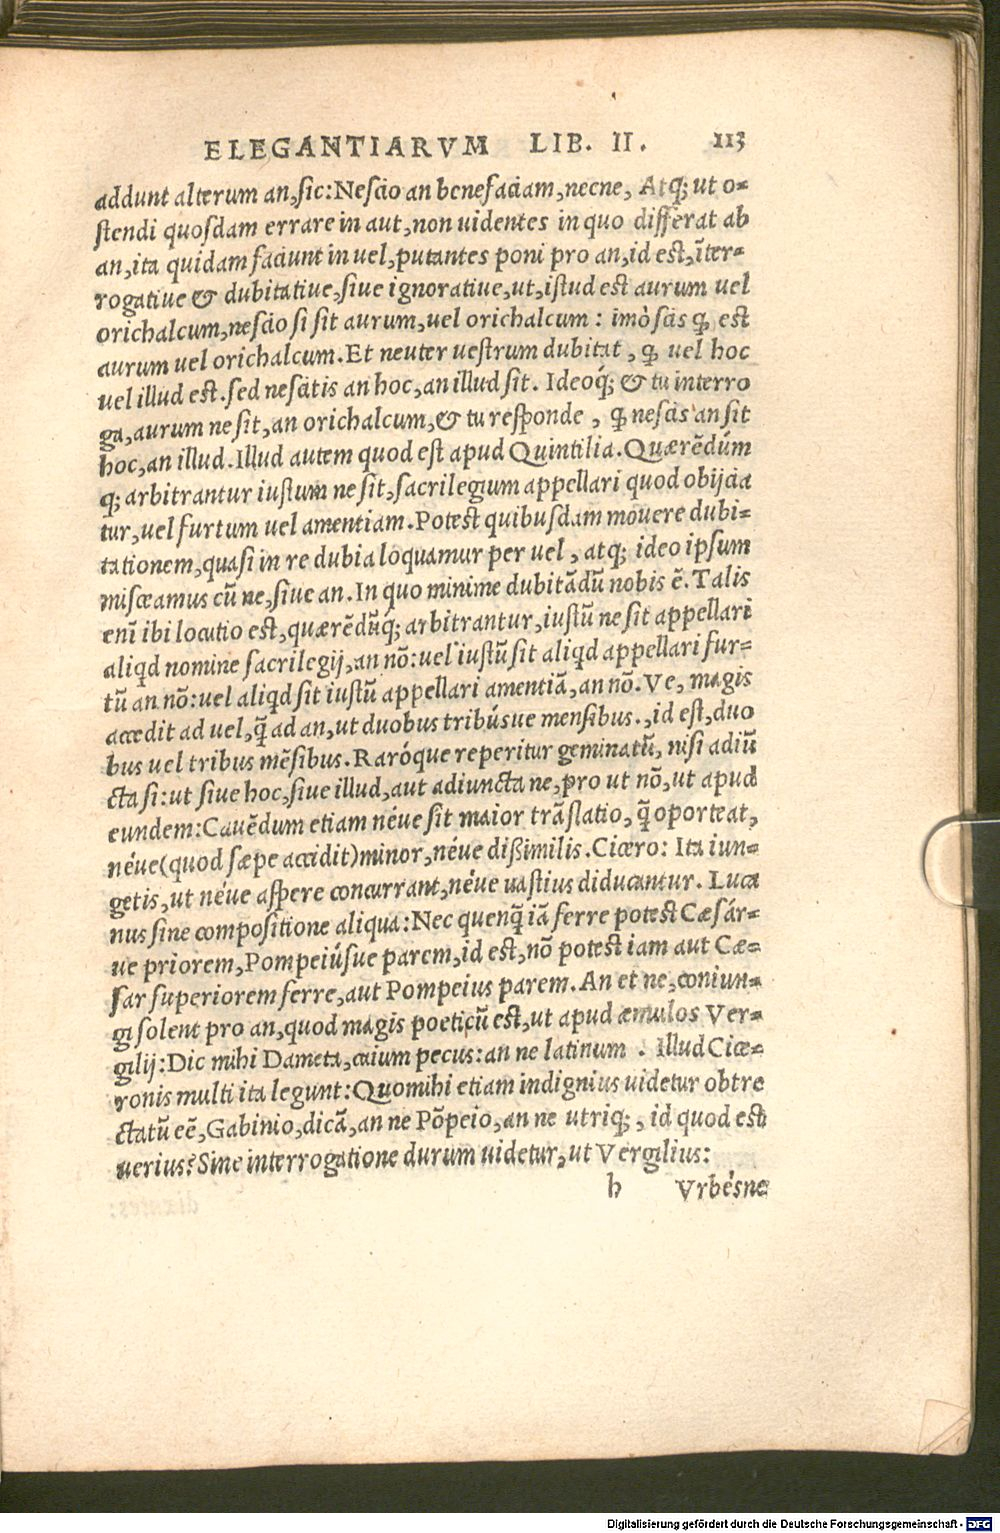 ELEGANTIARVM LIB. II. 113
addunt alterum an,sic:Nescio an benefaciam,necne, Atq; ut o-
stendi quosdam errare in aut,non uidentes in quo differat ab
an,ita quidam faciunt in uel,putantes poni pro an,id est,ĩter-
rogatiue & dubitatiue,siue ignoratiue,ut,istud est aurum uel
orichalcum,nescio si sit aurum,uel orichalcum: imò scis ꝙ est
aurum uel orichalcum.Et neuter uestrum dubitat, ꝙ uel hoc
uel illud est.sed nescitis an hoc,an illud sit. Ideoq́; & tu interro
ga,aurum ne sit,an orichalcum,& tu responde, ꝙ nescis an sit
hoc,an illud.Illud autem quod est apud Quintilia.Quærẽdúm
q; arbitrantur iustum ne sit,sacrilegium appellari quod obijcia
tur,uel furtum uel amentiam.Potest quibusdam mouere dubi-
tationem,quasi in re dubia loquamur per uel, atq; ideo ipsum
misceamus cũ ne,siue an.In quo minime dubitãdũ nobis ẽ.Talis
enĩ ibi locutio est,quærẽdũq́; arbitrantur,iustũ ne sit appellari
aliqd nomine sacrilegij,an nõ:uel iustũ sit aliqd appellari fur-
tũ an nõ:uel aliqd sit iustũ appellari amentiã,an nõ.Ve, magis
accedit ad uel,q̃ ad an,ut duobus tribúsue mensibus.,id est,duo
bus uel tribus mẽsibus.Raróque reperitur geminatũ, nisi adiũ
cta si:ut siue hoc,siue illud,aut adiuncta ne,pro ut nõ,ut apud
eundem:Cauẽdum etiam néue sit maior trãslatio,q̃ oporteat,
néue(quod sæpe accidit)minor,néue dißimilis.Cicero: Ita iun-
getis,ut néue aspere concurrant,néue uastius diducantur. Luca
nus sine compositione aliqua:Nec quenq̃ iã ferre potest Cæsár-
ue priorem,Pompeiúsue parem,id est,nõ potest iam aut Cæ-
sar superiorem ferre,aut Pompeius parem.An et ne,coniun-
gi solent pro an,quod magis poeticũ est,ut apud æmulos Ver-
gilij:Dic mihi Dameta,cuium pecus:an ne latinum . Illud Cice-
ronis multi ita legunt:Quomihi etiam indignius uidetur obtre
ctatũ eẽ,Gabinio,dicã,an ne Põpeio,an ne utriq;, id quod est
uerius?Sine interrogatione durum uidetur,ut Vergilius:
h Vrbésne
Digitalisierung gefördert durch die Deutsche Forschungsgemeinschaft - DFG